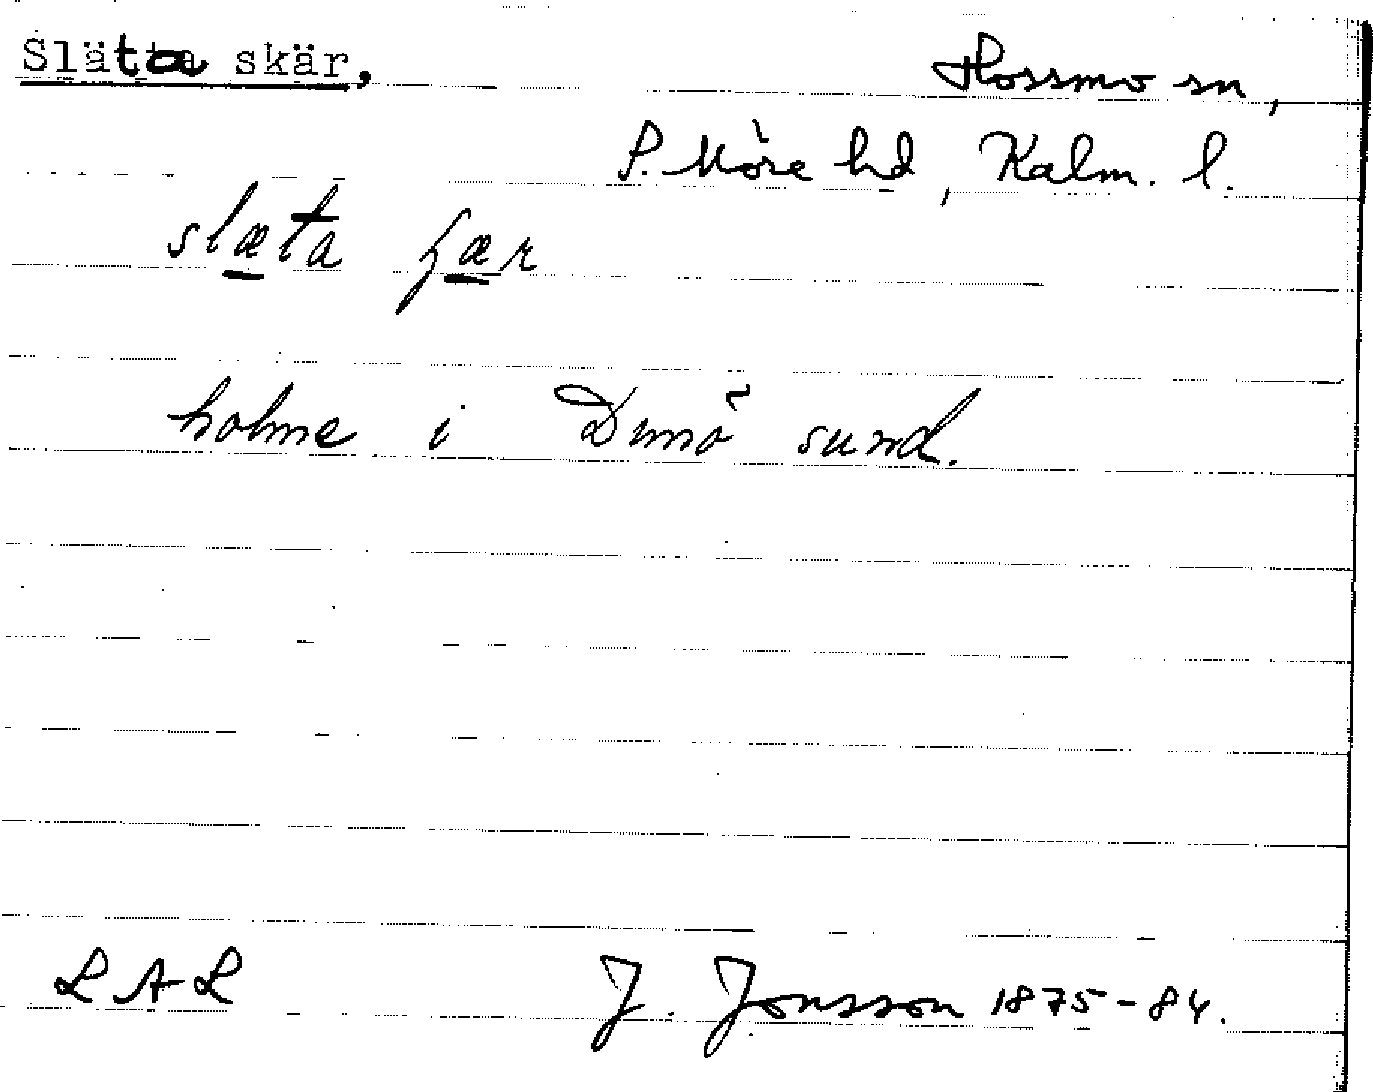 Släta skär,
Hossmo sn,
S. Möre hd, Kalm. l.
slæta ʃær
holme i Dunö sund.
LAL J. Jonsson 1875-84.